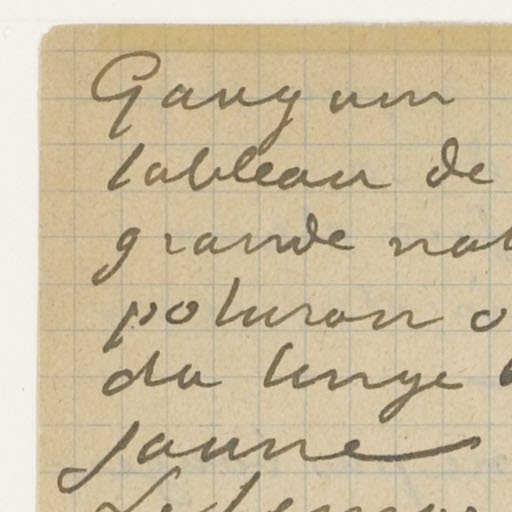 Gauguin
tableau de
grande nat
potiron o
du linge b
jaune